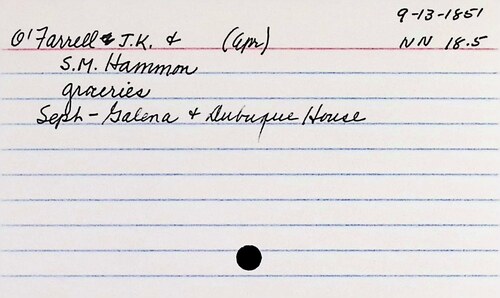 9-13-1851
O'Farrell & J.K. & (apr) NN 18.5
S.M. Hammon
groceries
Seph - Galena & Dubuque House